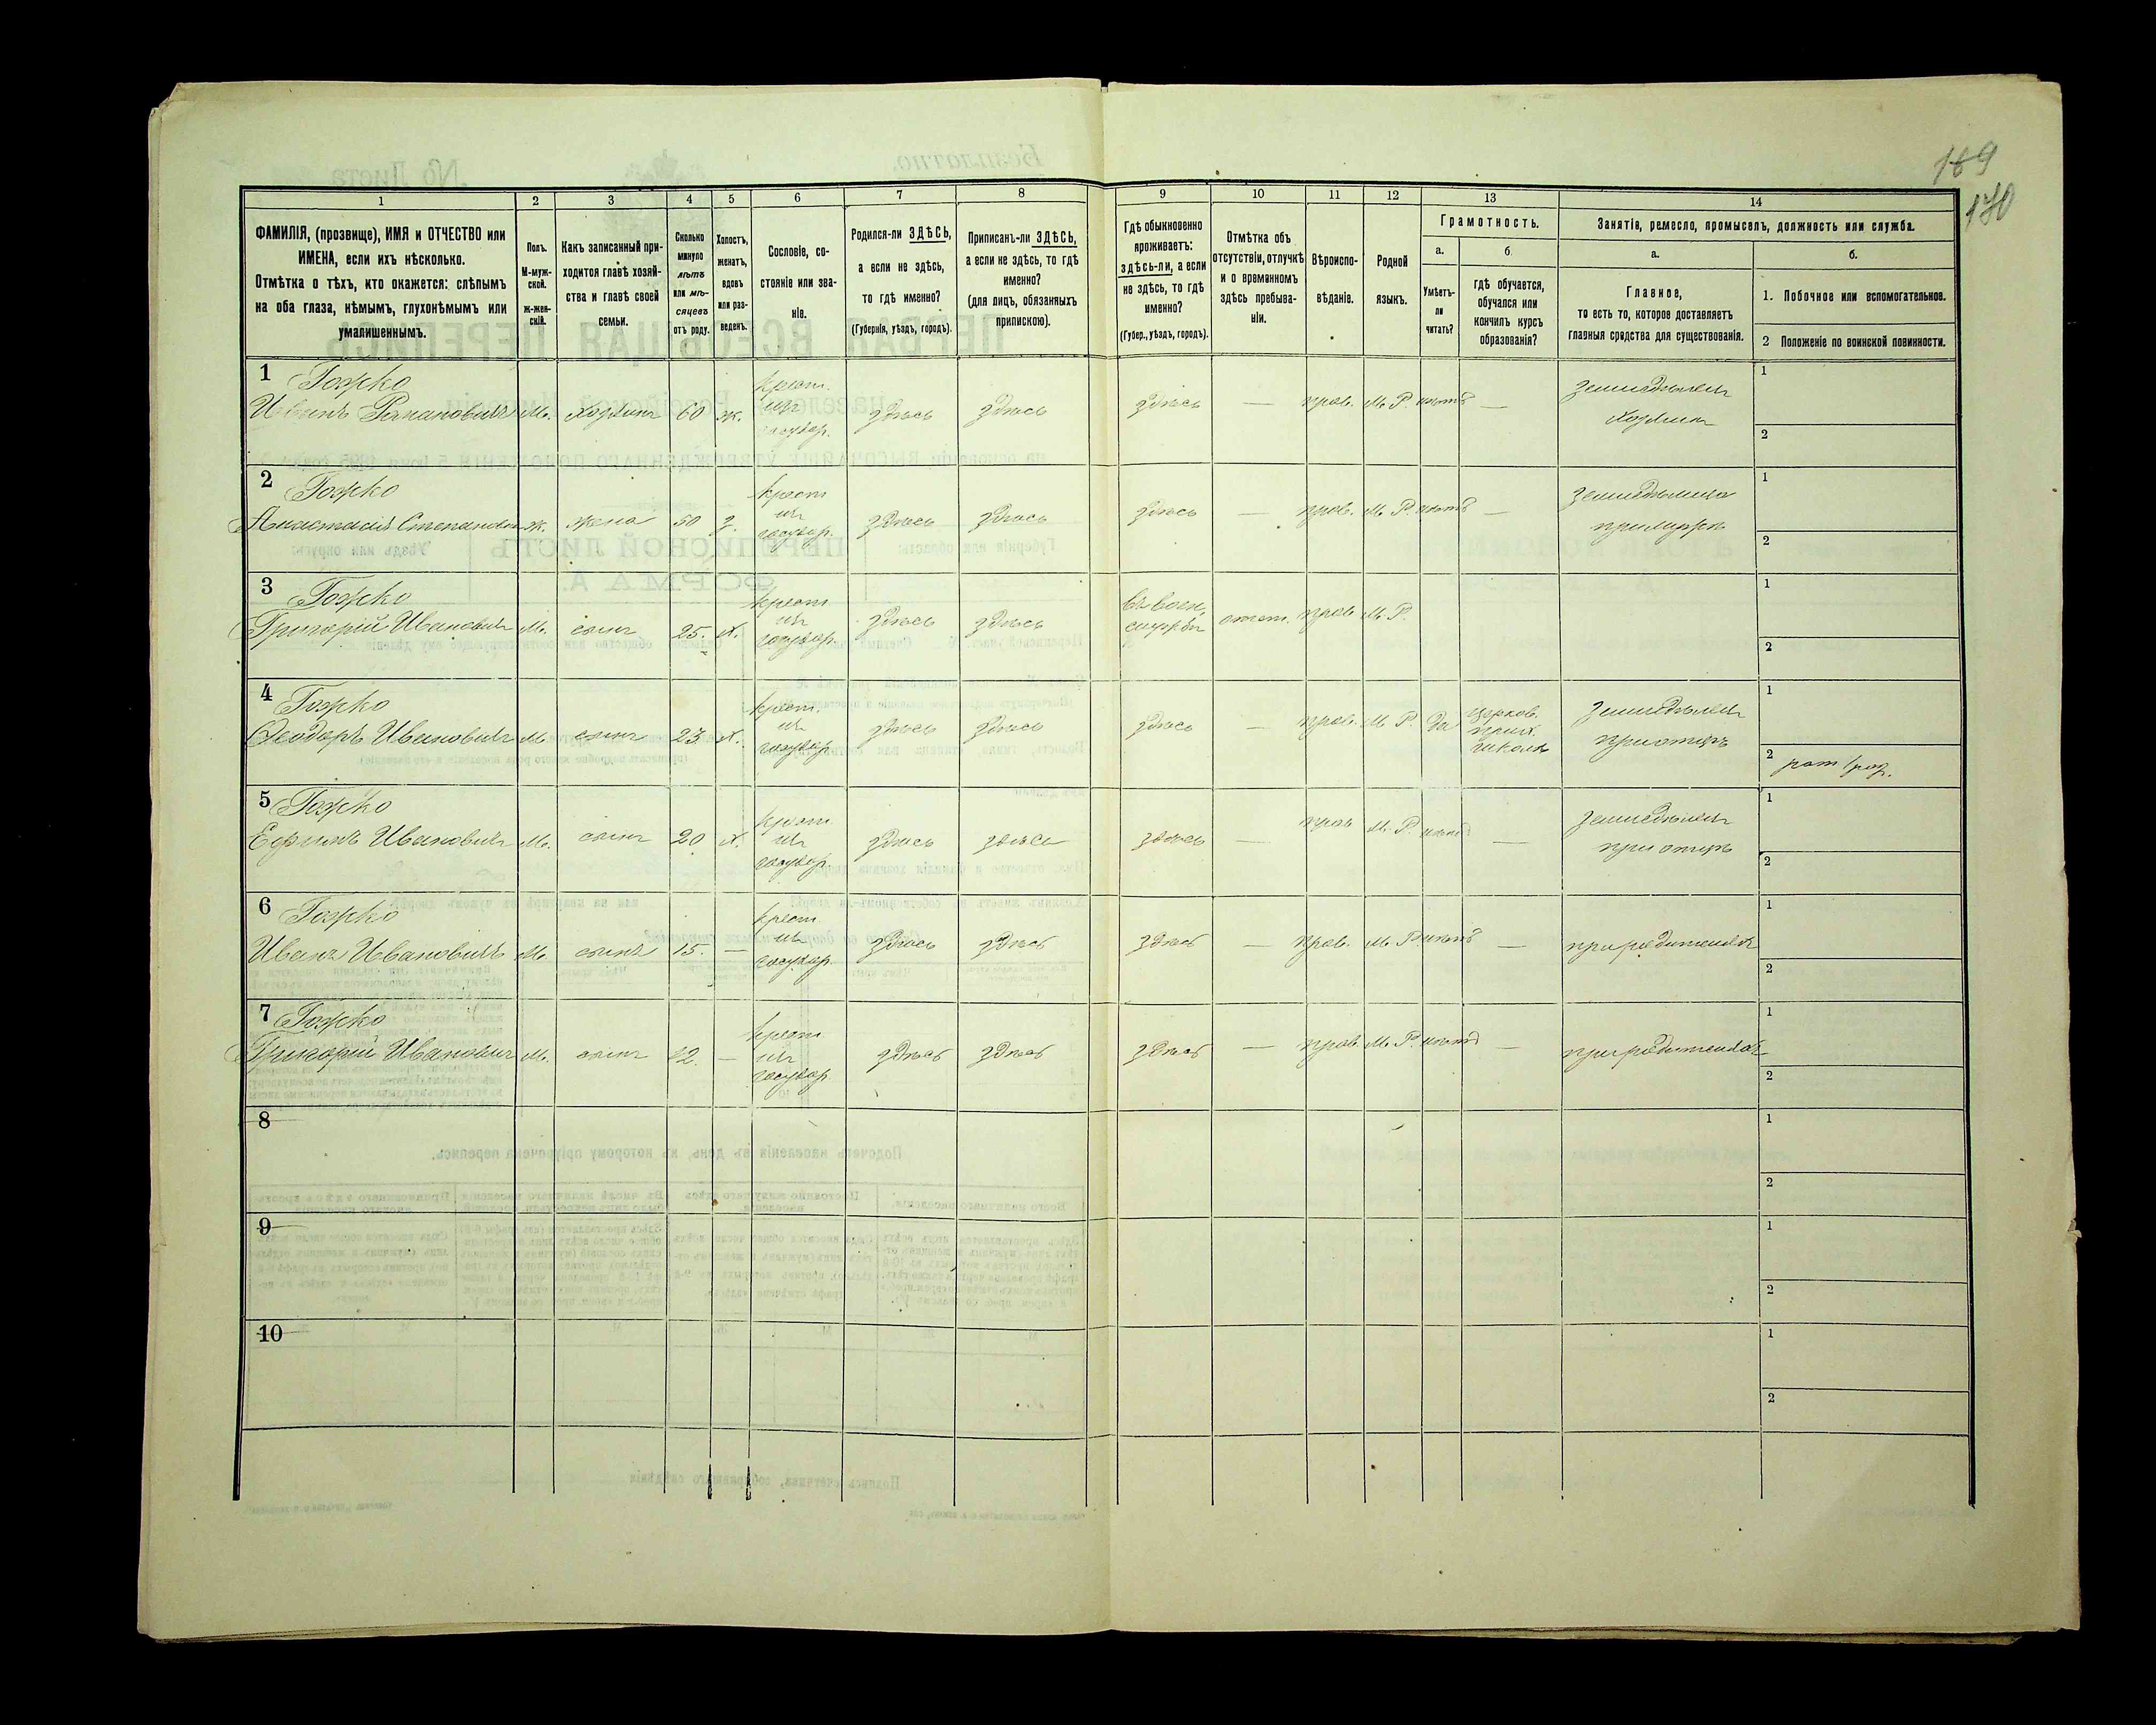 169
170
1
2
3
4
5
6
7
8
9
10
11
12
13
14
ФАМИЛІЯ, (прозвище), ИМЯ и ОТЧЕСТВО или
ИМЕНА, если ихъ нѣсколько.
Отмѣтка о тѣхъ, кто окажется: слѣпымъ
на оба глаза, нѣмымъ, глухонѣмымъ или
умалишеннымъ.
Полъ.
М-муж-
ской.
ж-жен-
скій.
Какъ записанный при-
ходится главѣ хозяй-
ства и главѣ своей
семьи.
Сколько
минуло
лѣтъ
или мѣ-
сяцевъ
отъ роду.
Холостъ,
женатъ,
вдовъ
или раз-
веденъ.
Сословіе, со-
стояніе или зва-
ніе.
Родился-ли ЗДѢСЬ,
а если не здѣсь,
то гдѣ именно?
(Губернія, уѣздъ, городъ).
Приписанъ-ли ЗДѢСЬ,
а если не здѣсь, то гдѣ
именно?
(для лицъ, обязанныхъ
припискою).
Гдѣ обыкновенно
проживаетъ:
здѣсь-ли, а если
не здѣсь, то гдѣ
именно?
(Губер., уѣздъ, городъ).
Отмѣтка объ
отсутствіи, отлучкѣ
и о временномъ
здѣсь пребыва-
ніи.
Вѣроиспо-
вѣданіе.
Родной
языкъ.
Грамотность.
а.
Умѣетъ-
ли
читать?
б.
гдѣ обучается,
обучался или
кончилъ курсъ
образованія?
Занятія, ремесло, промыселъ, должность или служба.
а.
Главное,
то есть то, которое доставляетъ
главныя средства для существованія.
б.
1. Побочное или вспомогательное.
2 Положеніе по воинской повинности.
1 Гожко
Иванъ Романовичъ М. хозяинъ 60 ж. крест. изъ государ. здѣсь здѣсь здѣсь — прав. М. Р. нѣтъ — земледѣлец хозяин
1
2
2 Гожко
Анастасія Степановна ж. жена 50 з. крест изъ государ. здѣсь здѣсь здѣсь — прав. М. Р. нѣтъ — земледѣлица при мужѣ
1
2
3 Гожко
Григорій Ивановичъ М. сынъ 25. х. крест изъ государ. здѣсь здѣсь въ воен. службѣ отсут. прав. М. Р.
1
2
4 Гожко
Феодоръ Ивановичъ М. сынъ 23 х. крест. изъ государ. здѣсь здѣсь здѣсь — прав. М. Р. да церков. прих. школѣ земледѣлец при отцѣ
1
2 рат 1 раз.
5 Гожко
Ефимъ Ивановичъ М. сынъ 20 х. крест изъ государ. здѣсь здѣсь здѣсь — прав М. Р. нѣтъ — земледѣлец при отцѣ
1
2
6 Гожко
Иванъ Ивановичъ М. сынъ 15. — крест изъ государ. здѣсь здѣсь здѣсь — прав. М. Р. нѣтъ — при родителяхъ
1
2
7 Гожко
Григорій Ивановичъ М. сынъ 12. — крест изъ государ. здѣсь здѣсь здѣсь — прав. М. Р. нѣтъ — при родителяхъ
1
2
8
1
2
9
1
2
10
1
2